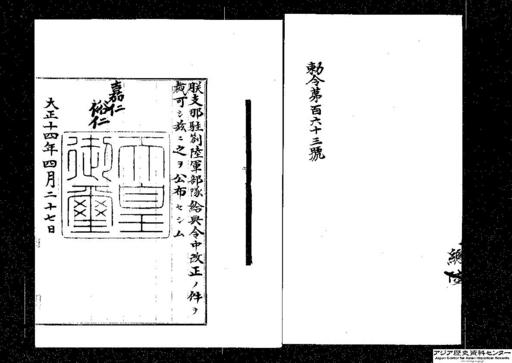 勅令第百六十三號
朕支那駐剳陸軍部隊給與令中改正ノ件ヲ
裁可シ茲ニ之ヲ公布セシム
嘉仁
裕仁
天皇
御璽
大正十四年四月二十七日
アジア歴史資料センター
Japan Center for Asian Historical Records